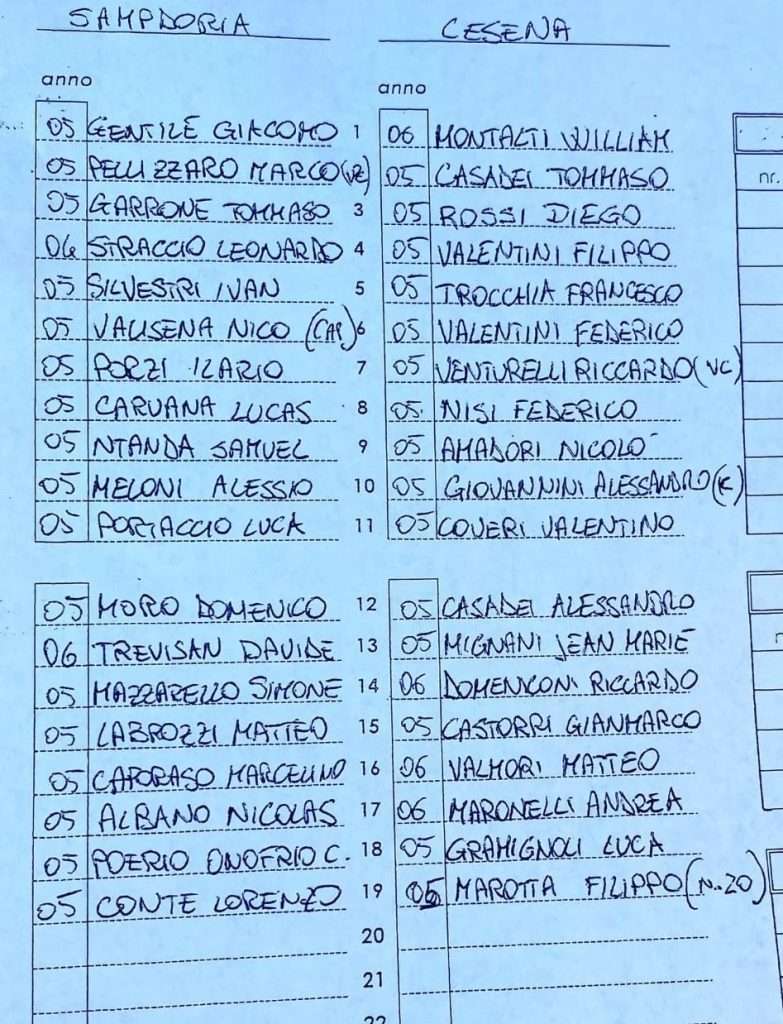 SAMPDORIA CESENA
anno anno
05 GENTILE GIACOMO 1 06 MONTALTI WILLIAM
05 PELLIZZARO MARCO (VC) 05 CASADEI TOMMASO nr.
05 GARRONE TOMMASO 3 05 ROSSI DIEGO
06 STRACCIO LEONARDO 4 05 VALENTINI FILIPPO
05 SILVESTRI IVAN 5 05 TROCCHIA FRANCESCO
05 VALISENA NICO (CAP) 6 05 VALENTINI FEDERICO
05 PORZI ILARIO 7 05 VENTURELLI RICCARDO (VC)
05 CARUANA LUCAS 8 05 NISI FEDERICO
05 NTANDA SAMUEL 9 05 AMADORI NICOLO'
05 MELONI ALESSIO 10 05 GIOVANNINI ALESSANDRO (K)
05 PORTACCIO LUCA 11 05 COVERI VALENTINO
05 MORO DOMENICO 12 05 CASADEI ALESSANDRO
06 TREVISAN DAVIDE 13 05 MIGNANI JEAN MARIE
05 MAZZARELLO SIMONE 14 06 DOMENICONI RICCARDO
05 LABROZZI MATTEO 15 05 CASTORRI GIANMARCO
05 CAPORASO MARCELLINO 16 06 VALMORI MATTEO
05 ALBANO NICOLAS 17 06 MARONELLI ANDREA
05 POERIO ONOFRIO C. 18 05 GRAMIGNOLI LUCA
05 CONTE LORENZO 19 05 MAROTTA FILIPPO (N..20)
20
21
22